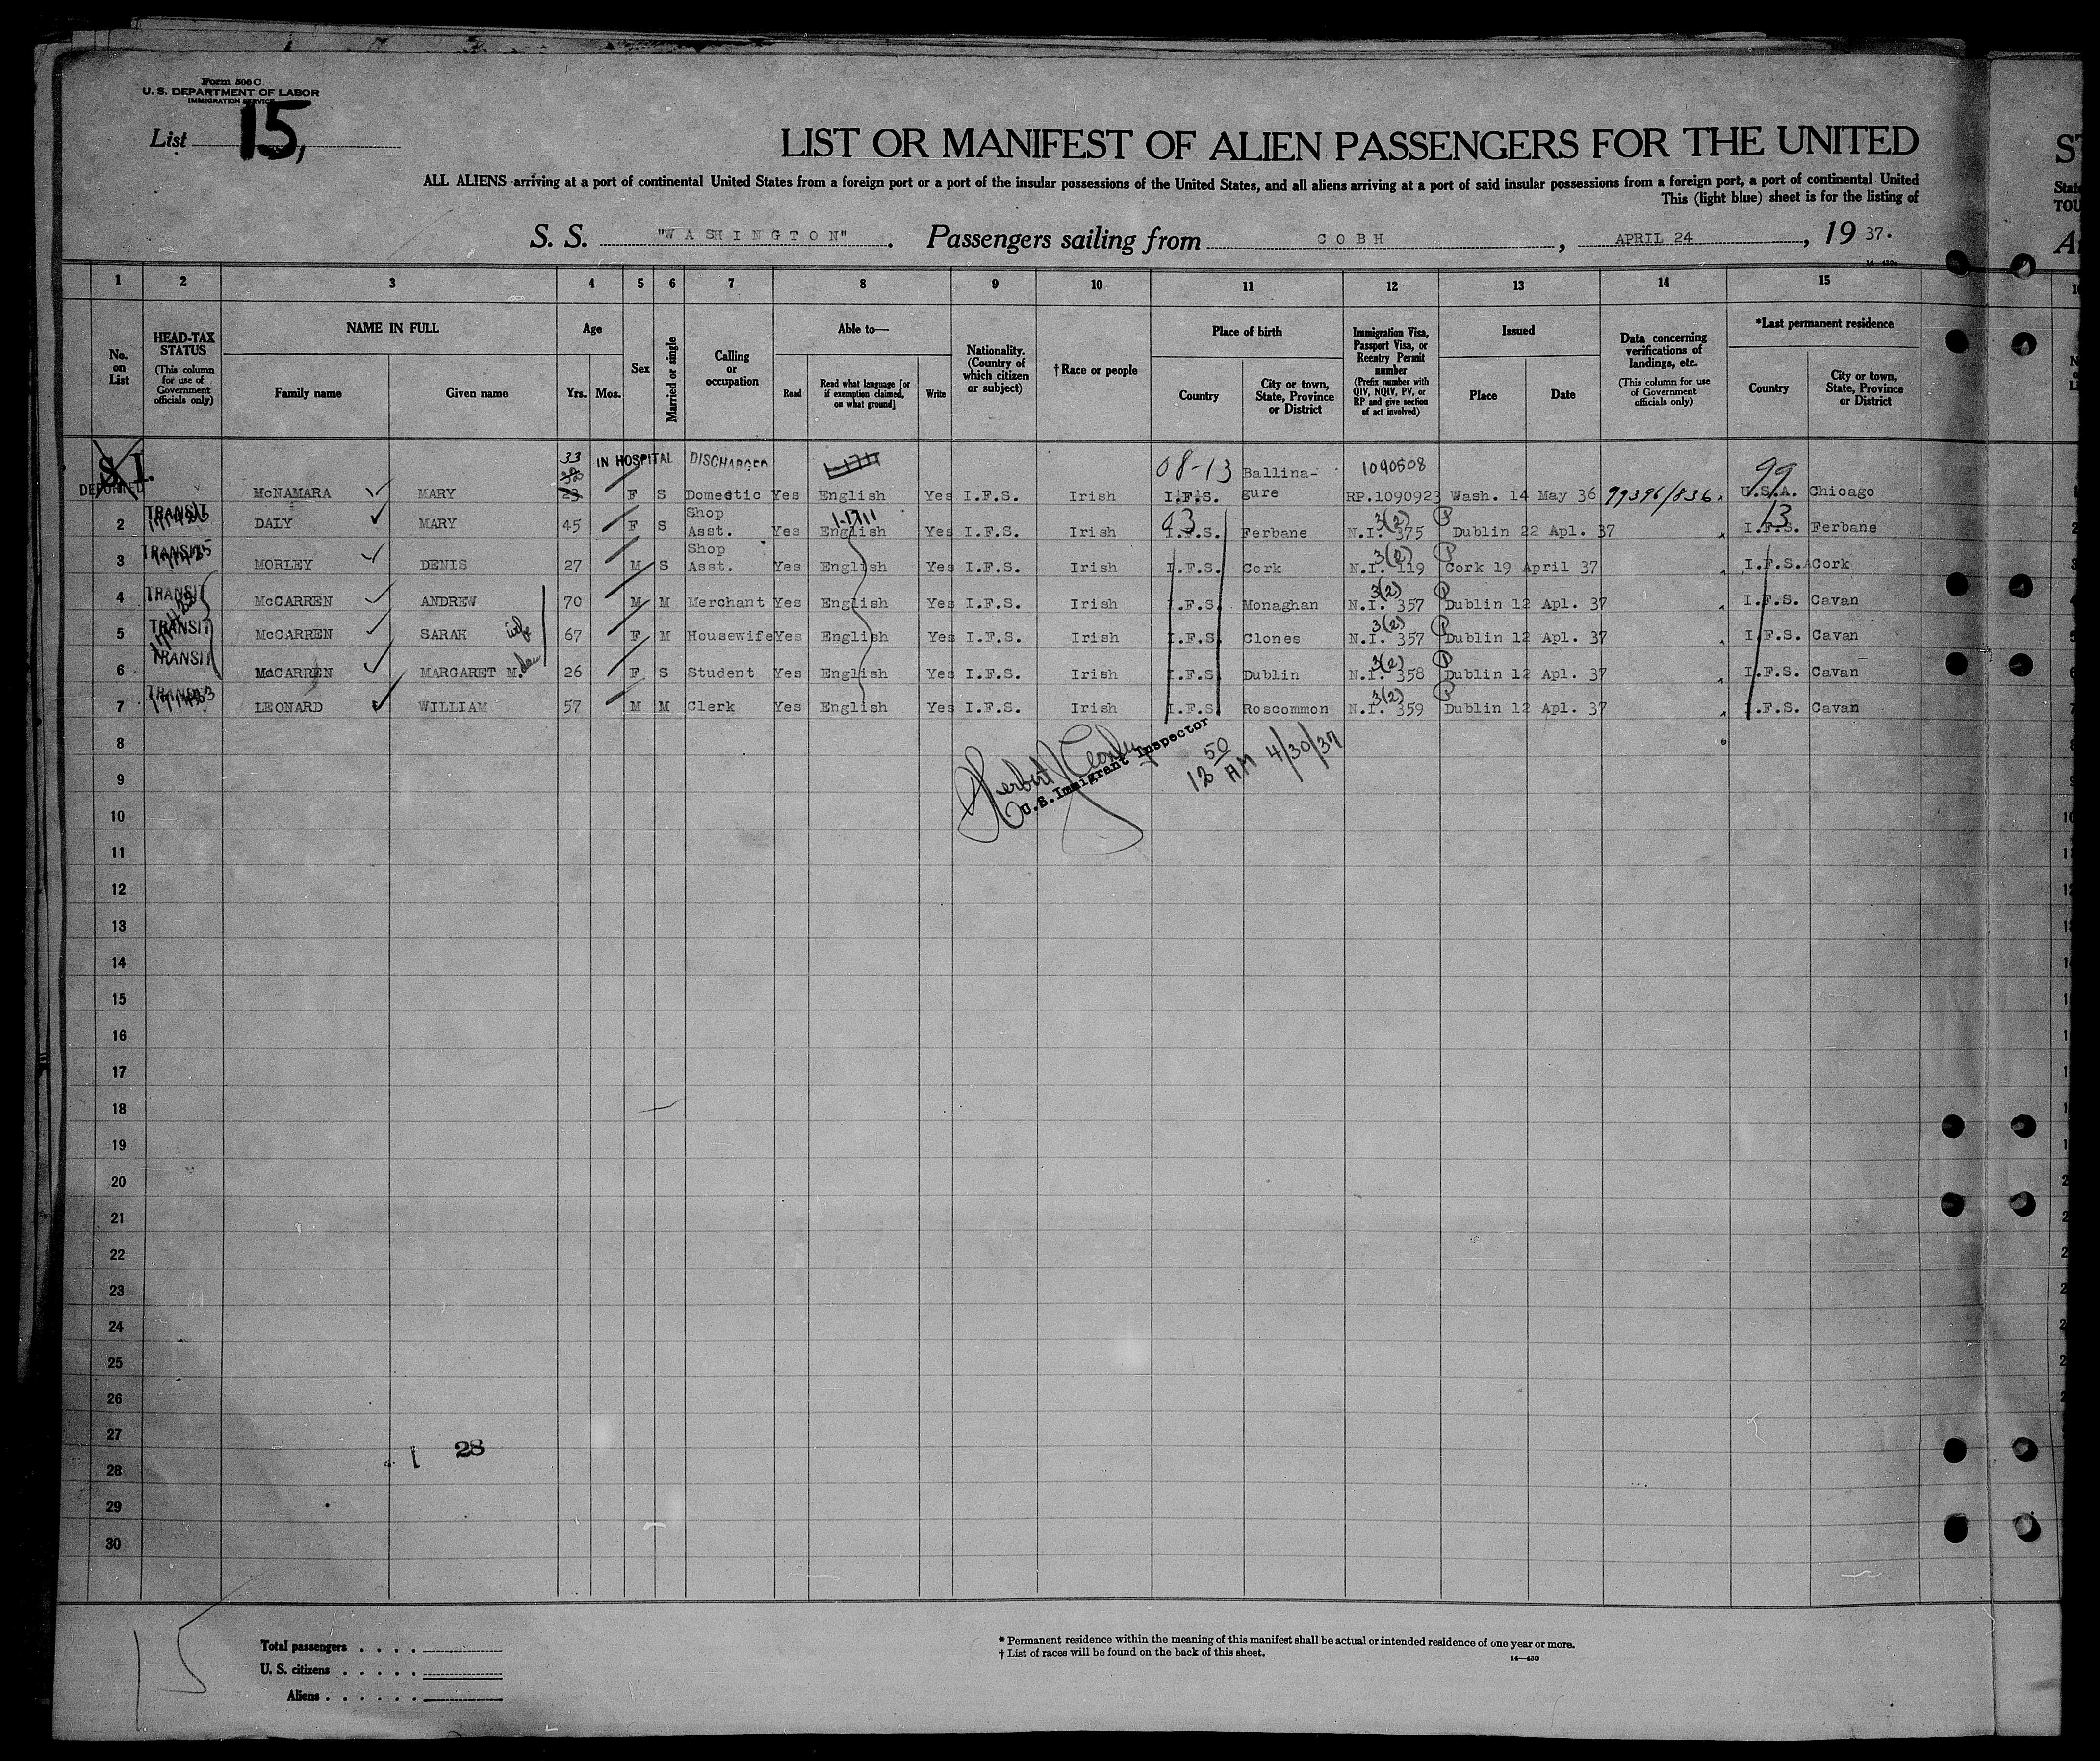 Form 500 C
U. S. DEPARTMENT OF LABOR
IMMIGRATION SERVICE
List 15,
LIST OR MANIFEST OF ALIEN PASSENGERS FOR THE UNITED
ST
ALL ALIENS arriving at a port of continental United States from a foreign port or a port of the insular possessions of the United States, and all aliens arriving at a port of said insular possessions from a foreign port, a port of continental United
This (light blue) sheet is for the listing of
S. S. "WASHINGTON". Passengers sailing from COBH, APRIL 24, 1937.
1 2 3 4 5 6 7 8 9 10 11 12 13 14 15
No. on List
HEAD-TAX STATUS (This column for use of Government officials only)
NAME IN FULL
Family name Given name
Age
Yrs. Mos.
Sex
Married or single
Calling or occupation
Able to—
Read
Read what language [or if exemption claimed, on what ground]
Write
Nationality. (Country of which citizen or subject)
† Race or people
Place of birth
Country
City or town, State, Province or District
Immigration Visa, Passport Visa, or Reentry Permit number (Prefix number with QIV, NQIV, PV, or RP and give section of act involved)
Issued
Place Date
Data concerning verifications of landings, etc. (This column for use of Government officials only)
*Last permanent residence
Country
City or town, State, Province or District
S.I. 33 IN HOSPITAL DISCHARGED 08-13 Ballina- 1090508 99
DEPORTED McNAMARA MARY 23 F S Domestic Yes English Yes I.F.S. Irish I.F.S. gure RP.1090923 Wash. 14 May 36 99396/836. U.S.A. Chicago
2 TRANSIT DALY MARY 45 F S Shop Asst. Yes English Yes I.F.S. Irish I.F.S. Ferbane 3(2) N.I. 375 Dublin 22 Apl. 37 13 I.F.S. Ferbane
3 TRANSIT MORLEY DENIS 27 M S Shop Asst. Yes English Yes I.F.S. Irish I.F.S. Cork 3(2) N.I. 119 Cork 19 April 37 I.F.S. Cork
4 TRANSIT McCARREN ANDREW 70 M M Merchant Yes English Yes I.F.S. Irish I.F.S. Monaghan 3(2) N.I. 357 Dublin 12 Apl. 37 I.F.S. Cavan
5 TRANSIT McCARREN SARAH wife 67 F M Housewife Yes English Yes I.F.S. Irish I.F.S. Clones 3(2) N.I. 357 Dublin 12 Apl. 37 I.F.S. Cavan
6 TRANSIT McCARREN MARGARET M. dau 26 F S Student Yes English Yes I.F.S. Irish I.F.S. Dublin 3(2) N.I. 358 Dublin 12 Apl. 37 I.F.S. Cavan
7 TRANSIT LEONARD WILLIAM 57 M M Clerk Yes English Yes I.F.S. Irish I.F.S. Roscommon 3(2) N.I. 359 Dublin 12 Apl. 37 I.F.S. Cavan
8
Herbert
U.S. Immigrant Inspector
12 50 AM 4/30/37
9
10
11
12
13
14
15
16
17
18
19
20
21
22
23
24
25
26
27
28
28
29
30
15
Total passengers
U. S. citizens
Aliens
* Permanent residence within the meaning of this manifest shall be actual or intended residence of one year or more.
† List of races will be found on the back of this sheet.
14—430